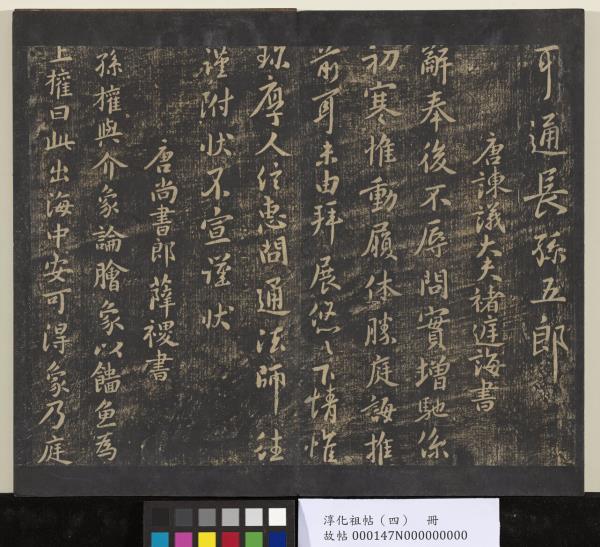 可通長孫五郎
唐諫議大夫褚庭誨書
辭奉後不辱問實增馳係
初寒惟動履休勝庭誨推
前耳未由拜展悠〻下情惟
珎厚人信惠問通法師往
謹附状不宣謹状
唐尚書郎薛稷書
孫權與介象論膾象以鯔魚為
上權曰此出海中安可得象乃庭
淳化祖帖（四） 冊
故帖 000147N000000000